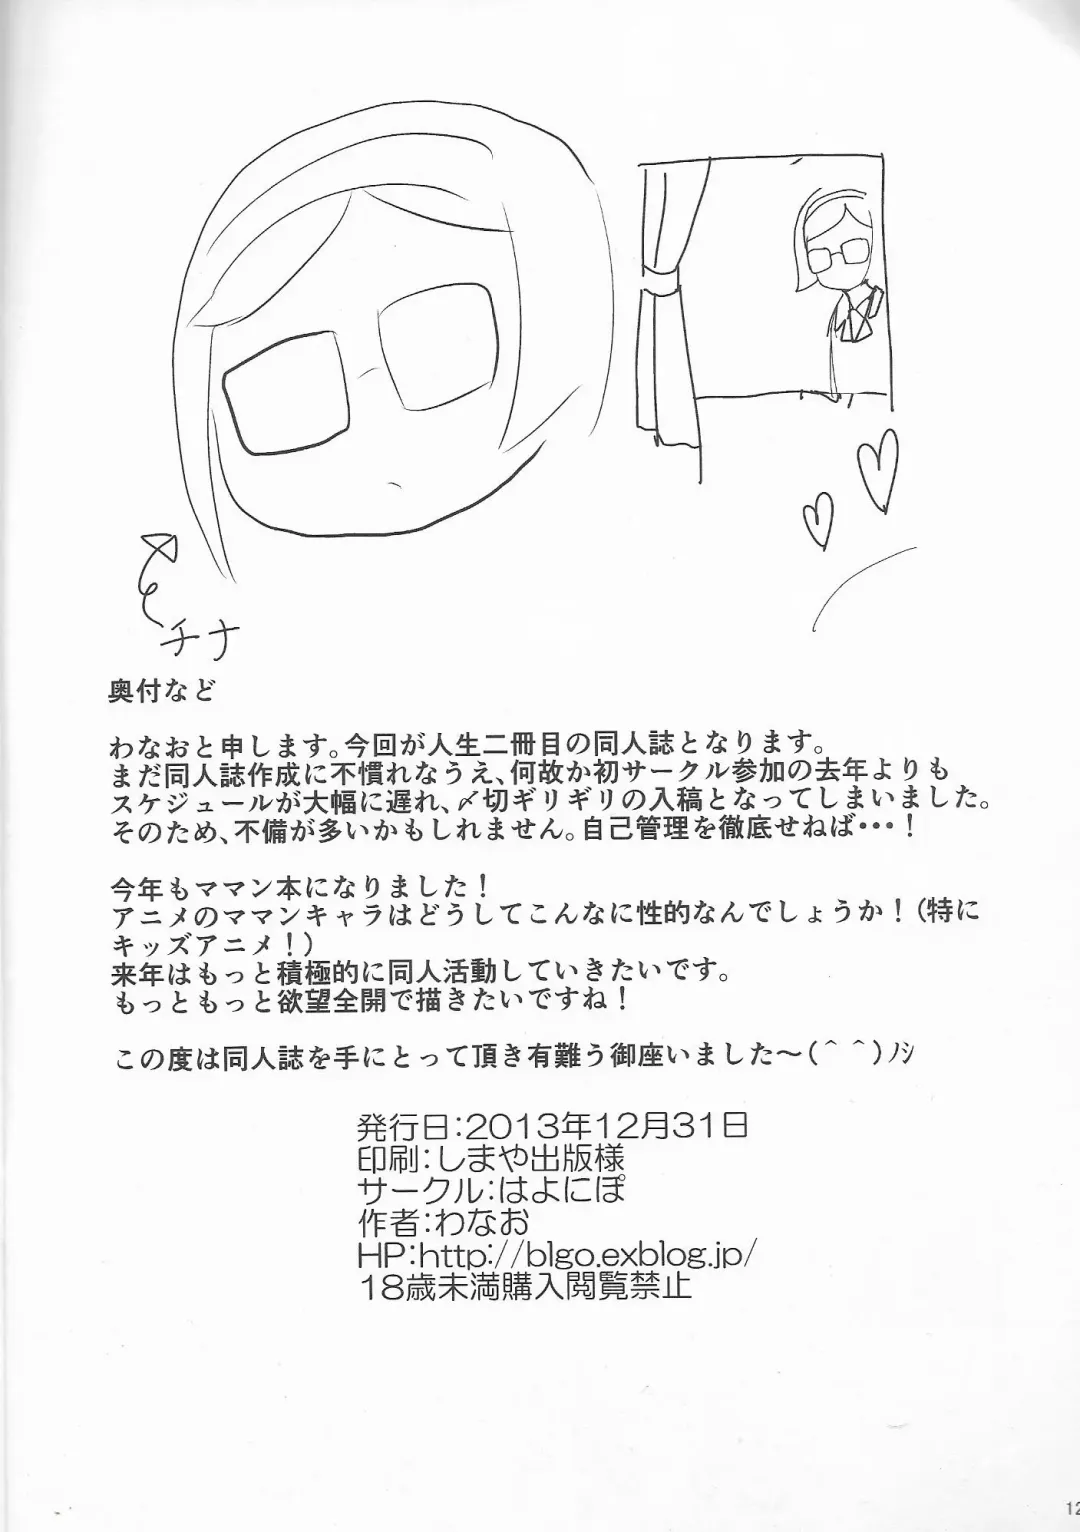 チナ
奥付など
わなおと申します。今回が人生二冊目の同人誌となります。
まだ同人誌作成に不慣れなうえ、何故か初サークル参加の去年よりも
スケジュールが大幅に遅れ、〆切ギリギリの入稿となってしまいました。
そのため、不備が多いかもしれません。自己管理を徹底せねば・・・！
今年もママン本になりました！
アニメのママンキャラはどうしてこんなに性的なんでしょうか！（特に
キッズアニメ！）
来年はもっと積極的に同人活動していきたいです。
もっともっと欲望全開で描きたいですね！
この度は同人誌を手にとって頂き有難う御座いました～(＾＾)ﾉｼ
発行日：2013年12月31日
印刷：しまや出版様
サークル：はよにぽ
作者：わなお
HP：http://blgo.exblog.jp/
18歳未満購入閲覧禁止
12